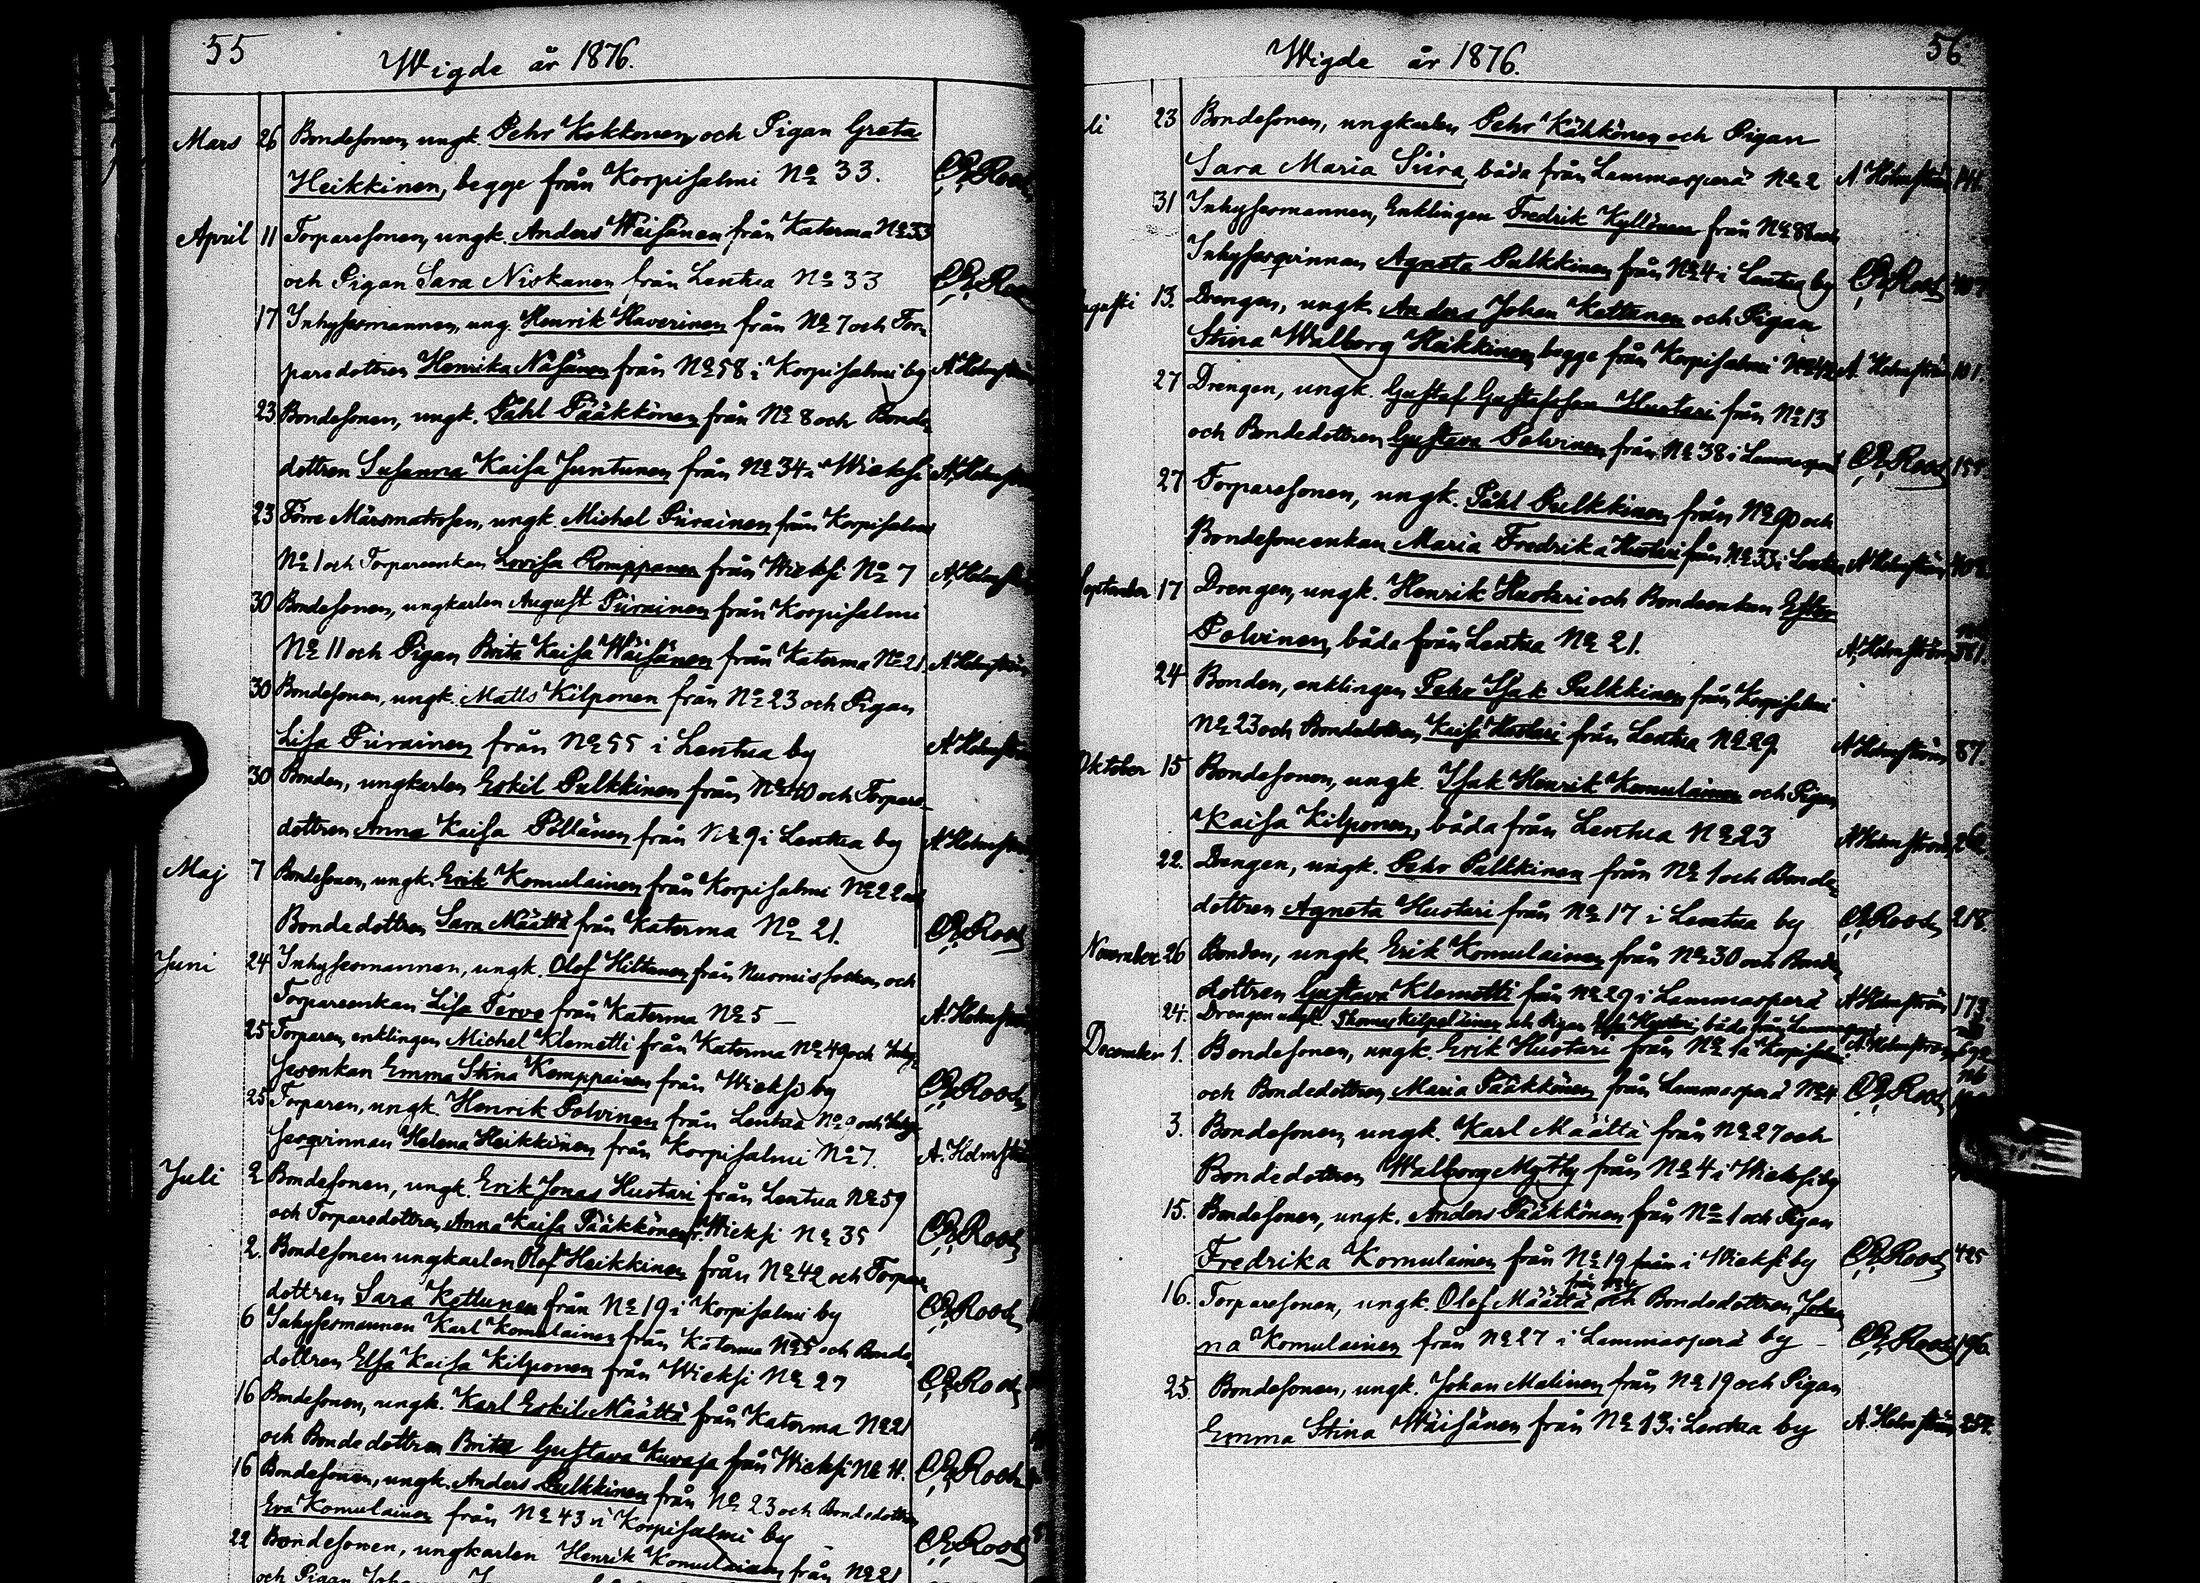 55
Wigde år 1876.
Mars 26 Bondesonen, ungk. Pehr Kokkonen, och Pigan Greta
Heikkinen, begge från Korpisalmi No 33. Roos
April 11 Torparesonen, ungk. Anders Wäisänen från Katerma No 33
och Pigan Sara Niskanen från Lentua No 33 Roos
17 Inhysesmannen, ung. Henrik Haverinen från No 7 och Tor-
paredottren Henrika Näsänen från No 58 i Korpisalmi by A. Holmström
23 Bondesonen, ungk. Påhl Pääkkönen från No 8 och Bonde-
dottren Susanna Kaisa Juntunen från No 34 i Wieksi A. Holmström
23 Förre Märsmatrosen, ungk. Michel Piirainen från Korpisalmi
No 1 och Torpareenkan Lovisa Komppanen från Wieksi No 7 A. Holmström
30 Bondesonen, ungkarlen August Piirainen från Korpisalmi
No 11 och Pigan Brita Kaisa Wäisänen från Katerma No 21 A. Holmström
30 Bondesonen, ungk. Matts Kilponen från No 23 och Pigan
Lisa Piirainen från No 55 i Lentua by A. Holmström
30 Bonden, ungkarlen Eskil Pulkkinen från No 40 och Torpare-
dottren Anna Kaisa Pöllänen från No 9 i Lentua by A. Holmström
Maj 7 Bondesonen, ungk. Erik Komulainen från Korpisalmi No 22 och
Bondedottren Sara Määttä från Katerma No 21. Roos
Juni 24 Inhysesmannen, ungk. Olof Hiltunen från Nurmis socken, och
Torpareenkan Lisa Tervo från Katerma No 5 – A. Holmström
25 Torparen, enklingen Michel Klemetti från Katerma No 49 och Inhy-
sesenkan Emma Stina Kemppainen från Wieksi by Roos
25 Torparen, ungk. Henrik Polvinen från Lentua No 9 och Inhy-
sesqvinnan Helena Heikkinen från Korpisalmi No 7. A. Holmström
Juli 2 Bondesonen, ungk. Erik Jonas Huotari från Lentua No 59
och Torparedottren Anna Kaisa Pääkkönen fr. Wieksi No 35 Roos
2. Bondesonen ungkarlen Olof Heikkinen från No 42 och Torpare
dottren Sara Kettunen från No 19 i Korpisalmi by Roos
6 Inhysesmannen Karl Komulainen från Katerma No 5 och Bonde-
dottren Elsa Kaisa Kilponen från Wieksi No 27 Roos
16 Bondesonen, ungk. Karl Eskil Määttä från Katerma No 21
och Bondedottren Brita Gustava Kuvaja från Wieksi No 11. Roos
16 Bondesonen, ungk. Anders Pulkkinen från No 23 och Bondedottren
Eva Komulainen från No 43 i Korpisalmi by – Roos
22 Bondesonen, ungkarlen Henrik Komulainen från No 21
och Pigan
56
Wigde år 1876.
23 Bondesonen, ungkarlen Pehr Kähkönen och Pigan
Sara Maria Siira, båda från Lammasperä No 2 A Holmström 144.
31 Inhysesmannen, Enklingen Fredrik Kyllönen från No 88 och
Inhysesqvinnan Agneta Pulkkinen från No 4 i Lentua by Roos
13. Drengen, ungk. Anders Johan Kettunen och Pigan
Stina Walborg Heikkinen, begge från Korpisalmi No 42 A. Holmström 101.
27 Drengen, ungk. Gustaf Gustafsson Huotari från No 13
och Bondedottren Gustava Polvinen från No 38 i Lammasperä Roos
27 Torparesonen, ungk. Påhl Pulkkinen från No 90 och
Bondesoneenkan Maria Fredrika Huotari från No 33 i Lentua A Holmström
September 17 Drengen, ungk. Henrik Huotari och Bondeenkan Ester
Polvinen, båda från Lentua No 21. A. Holmström
24 Bonden, enklingen Pehr Isak Pulkkinen från Korpisalmi
No 23 och Bondedottren Kaisa Huotari från Lentua No 29 A Holmström 87.
Oktober 15 Bondesonen, ungk. Isak Henrik Komulainen och Pigan
Kaisa Kilponen, båda från Lentua No 23 A Holmström
22. Drengen, ungk. Pehr Pulkkinen från No 1 och Bonde-
dottren Agneta Huotari från No 17 i Lentua by Roos 218.
November 26 Bonden, ungk. Erik Komulainen från No 30 och Bonde-
dottren Gustava Klemetti från No 29 i Lammasperä A Holmström 173.
24. Drengen ungk. Thomas Kilpeläinen och Pigan Huotari, båda från Lammasperä A. Holmström
December 1. Bondesonen, ungk. Erik Huotari från No 1a Korpisalmi
och Bondedottren Maria Pääkkönen från Lammasperä No 4 Roos
3. Bondesonen, ungk. Karl Määttä från No 27 och
Bondedottren Walborg Mythy från No 4 i Wieksi by
15. Bondesonen, ungk. Anders Pääkkönen från No 1 och Pigan
Fredrika Komulainen från No 19 från i Wieksi by Roos 425
16. Torparesonen, ungk. Olof Määttä och Bondedottren Johan
na Komulainen från No 27 i Lammasperä by – Roos 196.
25 Bondesonen, ungk. Johan Malinen från No 19 och Pigan
Emma Stina Wäisänen från No 13 i Lentua by A. Holmström 254.